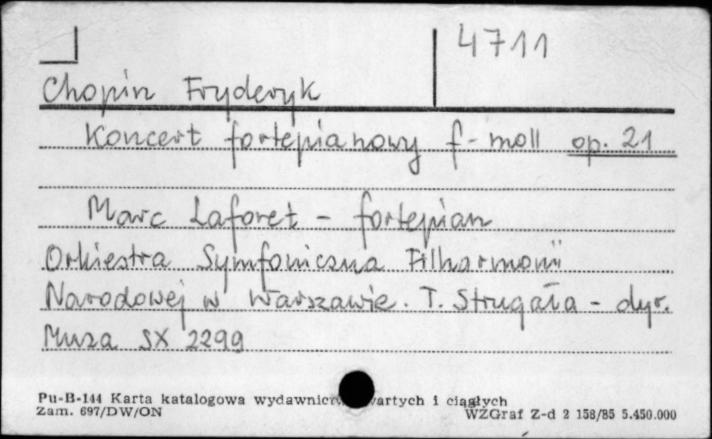 4711
Chopin Fryderyk
Koncert fortepianowy f-moll op. 21
Marc Laforet - fortepian
Orkiestra Symfoniczna Filharmonii
Narodowej w Warszawie. T. Strugała - dyr.
Muza SX 2299
Pu-B-144 Karta katalogowa wydawnictw zwartych i ciągłych
Zam. 697/DW/ON WZGraf Z-d 2 158/85 5.450.000